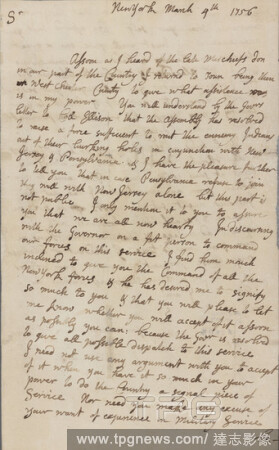 NewYork March 4th 1756
Sr
Assoon as I heard of the late Mischiefs don
in our part of the Country I in Town being then
in West Chester County to give what assistance was
is in my power. You will understand by the Govrs
letter to Ellison that the Assembly has resolved
to raise a force sufficient to rout the enemy Indians
out of their lurking holes in conjunction with New
Jersey & Pensylvania & I have the pleasure further
to tell you that in case Pensylvania refuse to join
they will with New Jersey alone but this part is
not publick I only mention it to you to assure
you that we are all now hearty. In discoursing
with the Governor on a fit person to command
our forces on this service I find him much
inclined to give you the Command of all the
New York forces & he has desired me to signify
so much to you & that you will please to let
me know whether you will accept of it assoon
as possibly you can because the Govr is resolved
to give all possible dispatch to this service
I need not use any argument with you to accept
of it when you have it so much in your
power to do the Country a signal piece of
Service Nor need you make any excuse of
your want of experience in military Service
TPG
www.tpgnews.com / 達志影像